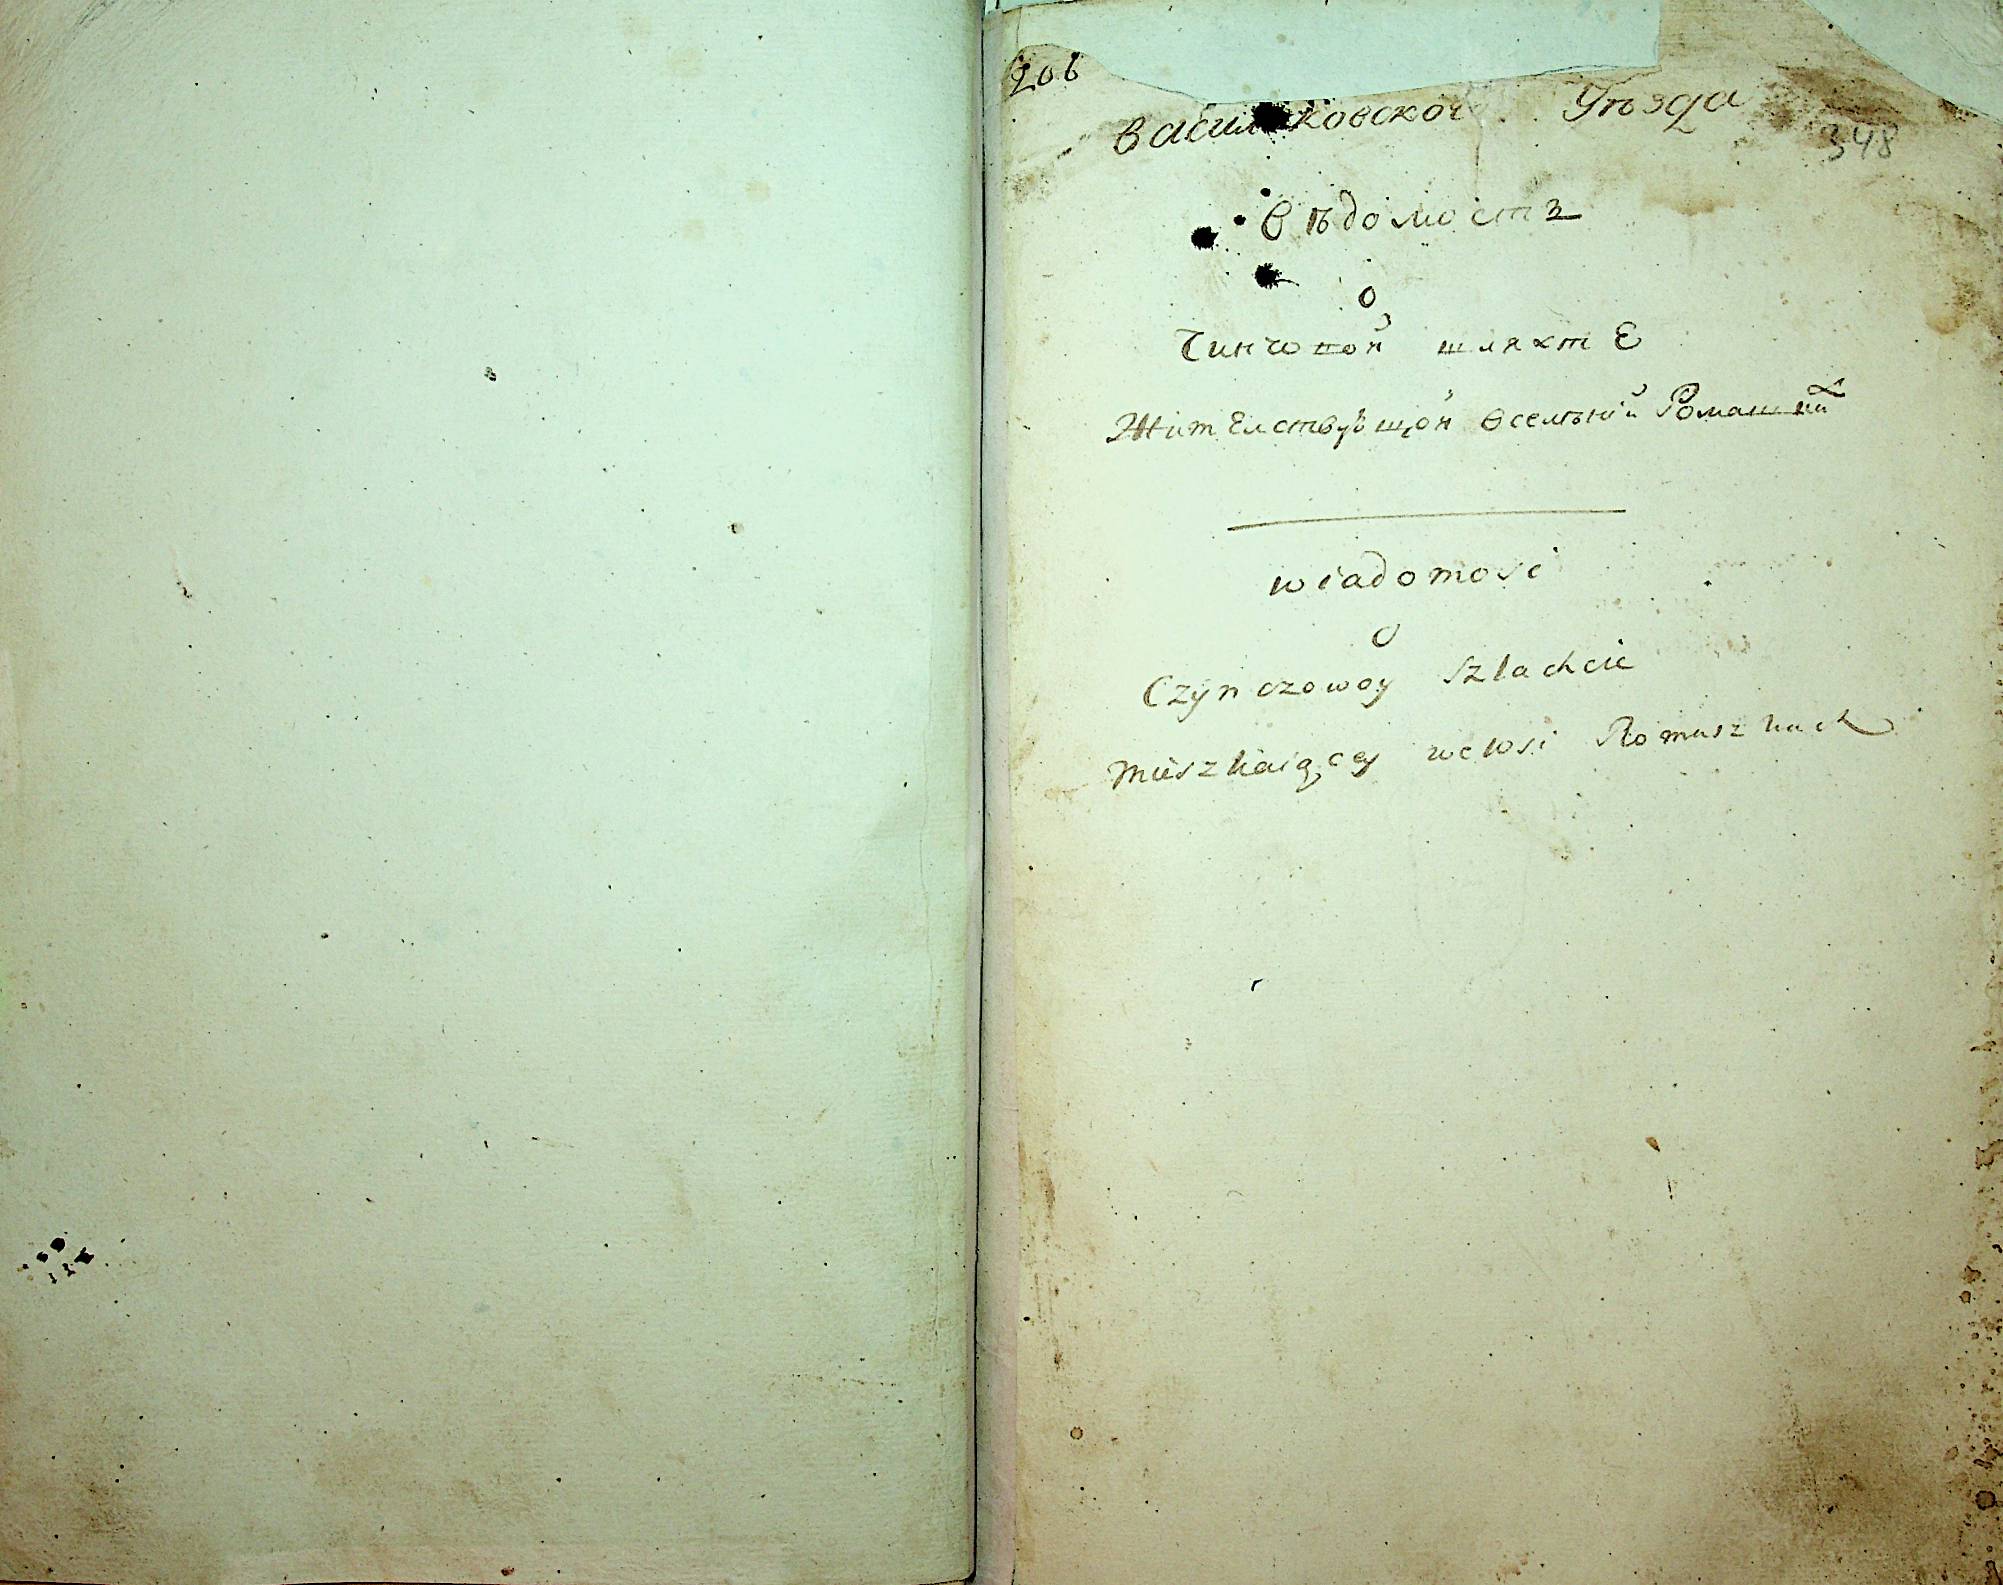 206
Василковского Уѣзда
348
Вѣдомость
о
Чинчовой шляхтѣ
Жителствующой
wiadomość
o
Czynczowey Szlachcie
Mieszkaiącey we wsi Romaszkach